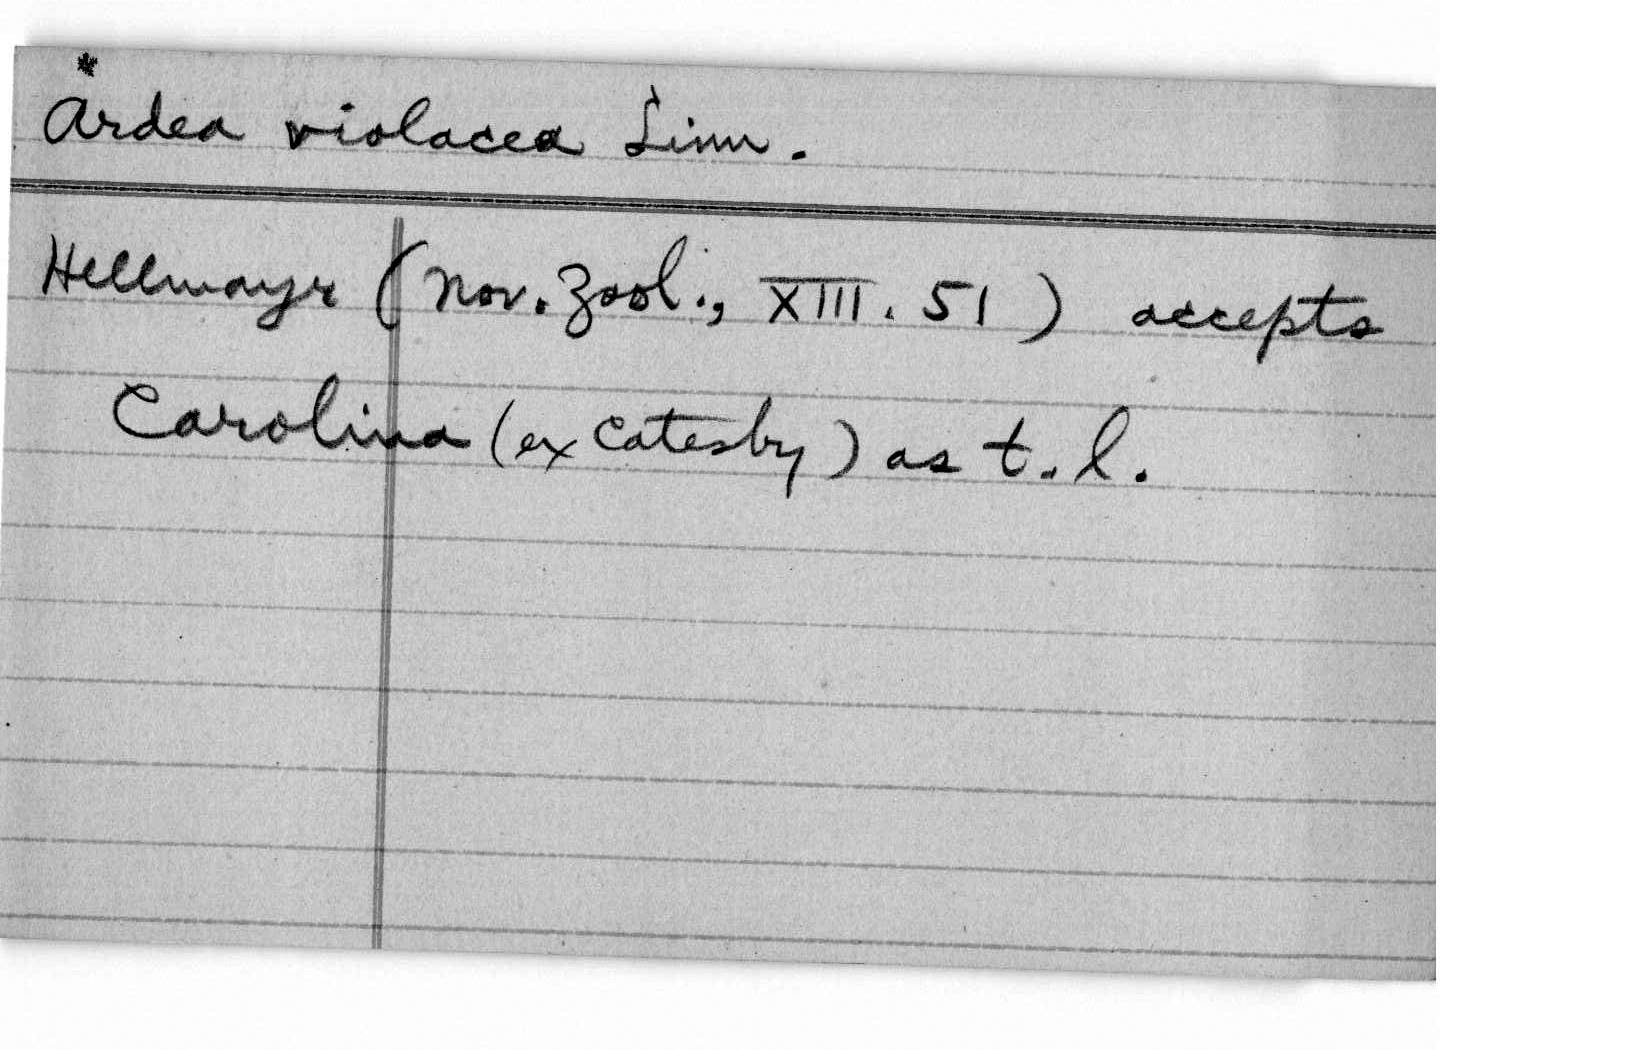 *
Ardea violacea Linn.
Hellmayr (Nov. Zool., XIII. 51) accepts
Carolina (ex Catesby) as t. l.